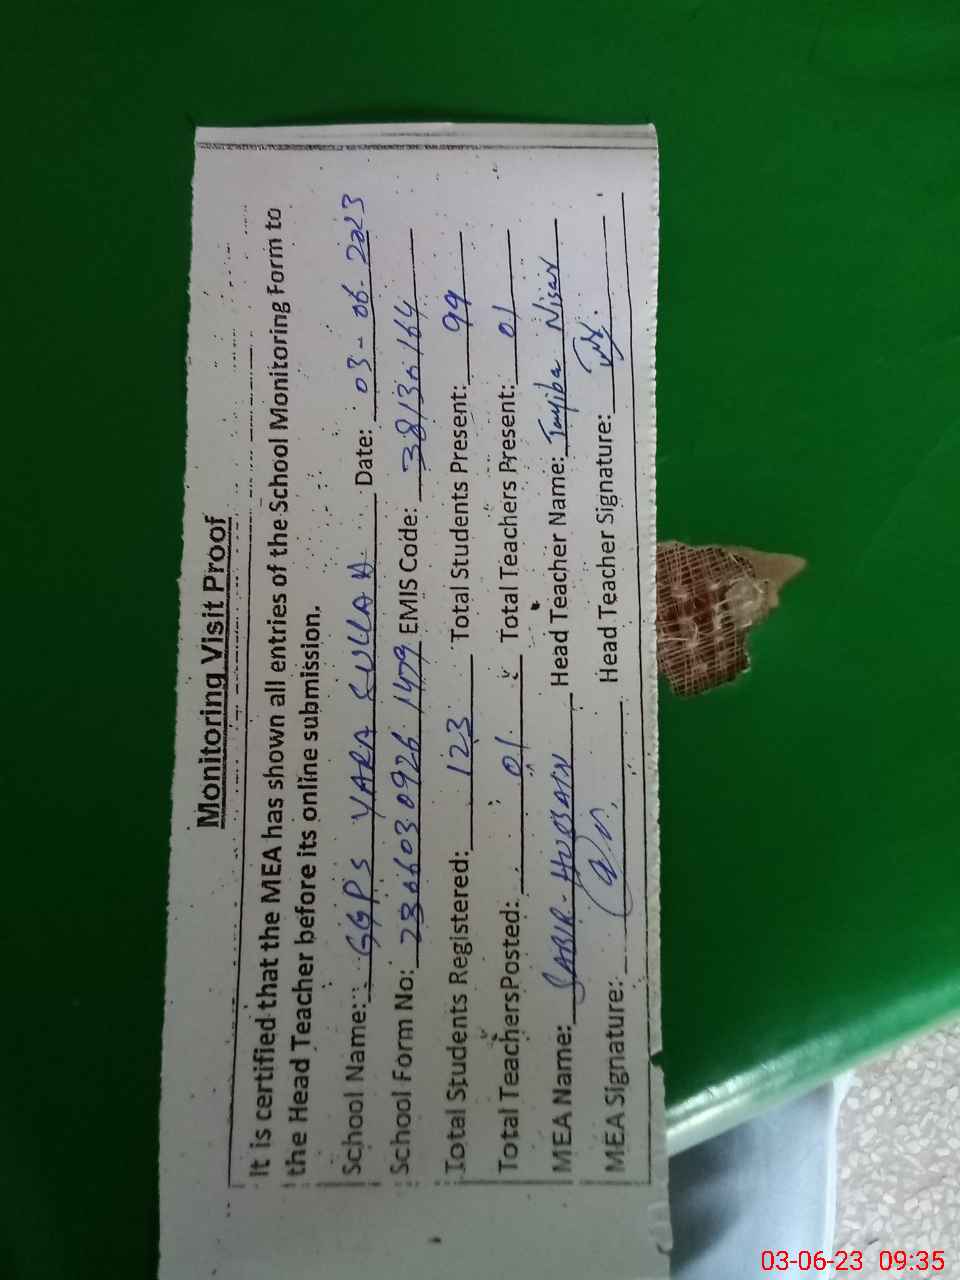 Monitoring Visit Proof
It is certified that the MEA has shown all entries of the School Monitoring Form to
the Head Teacher before its online submission.
School Name: GGPS YARA SULLAH Date: 03-06-2023
School Form No: 236603.0926 1479 EMIS Code: 38130164
Total Students Registered: 123 Total Students Present: 99
Total TeachersPosted: 01 Total Teachers Present: 01
MEA Name: SABIR-HUSSAIN Head Teacher Name: Tayiba Nisar
MEA Signature: Head Teacher Signature:
03-06-23 09:35